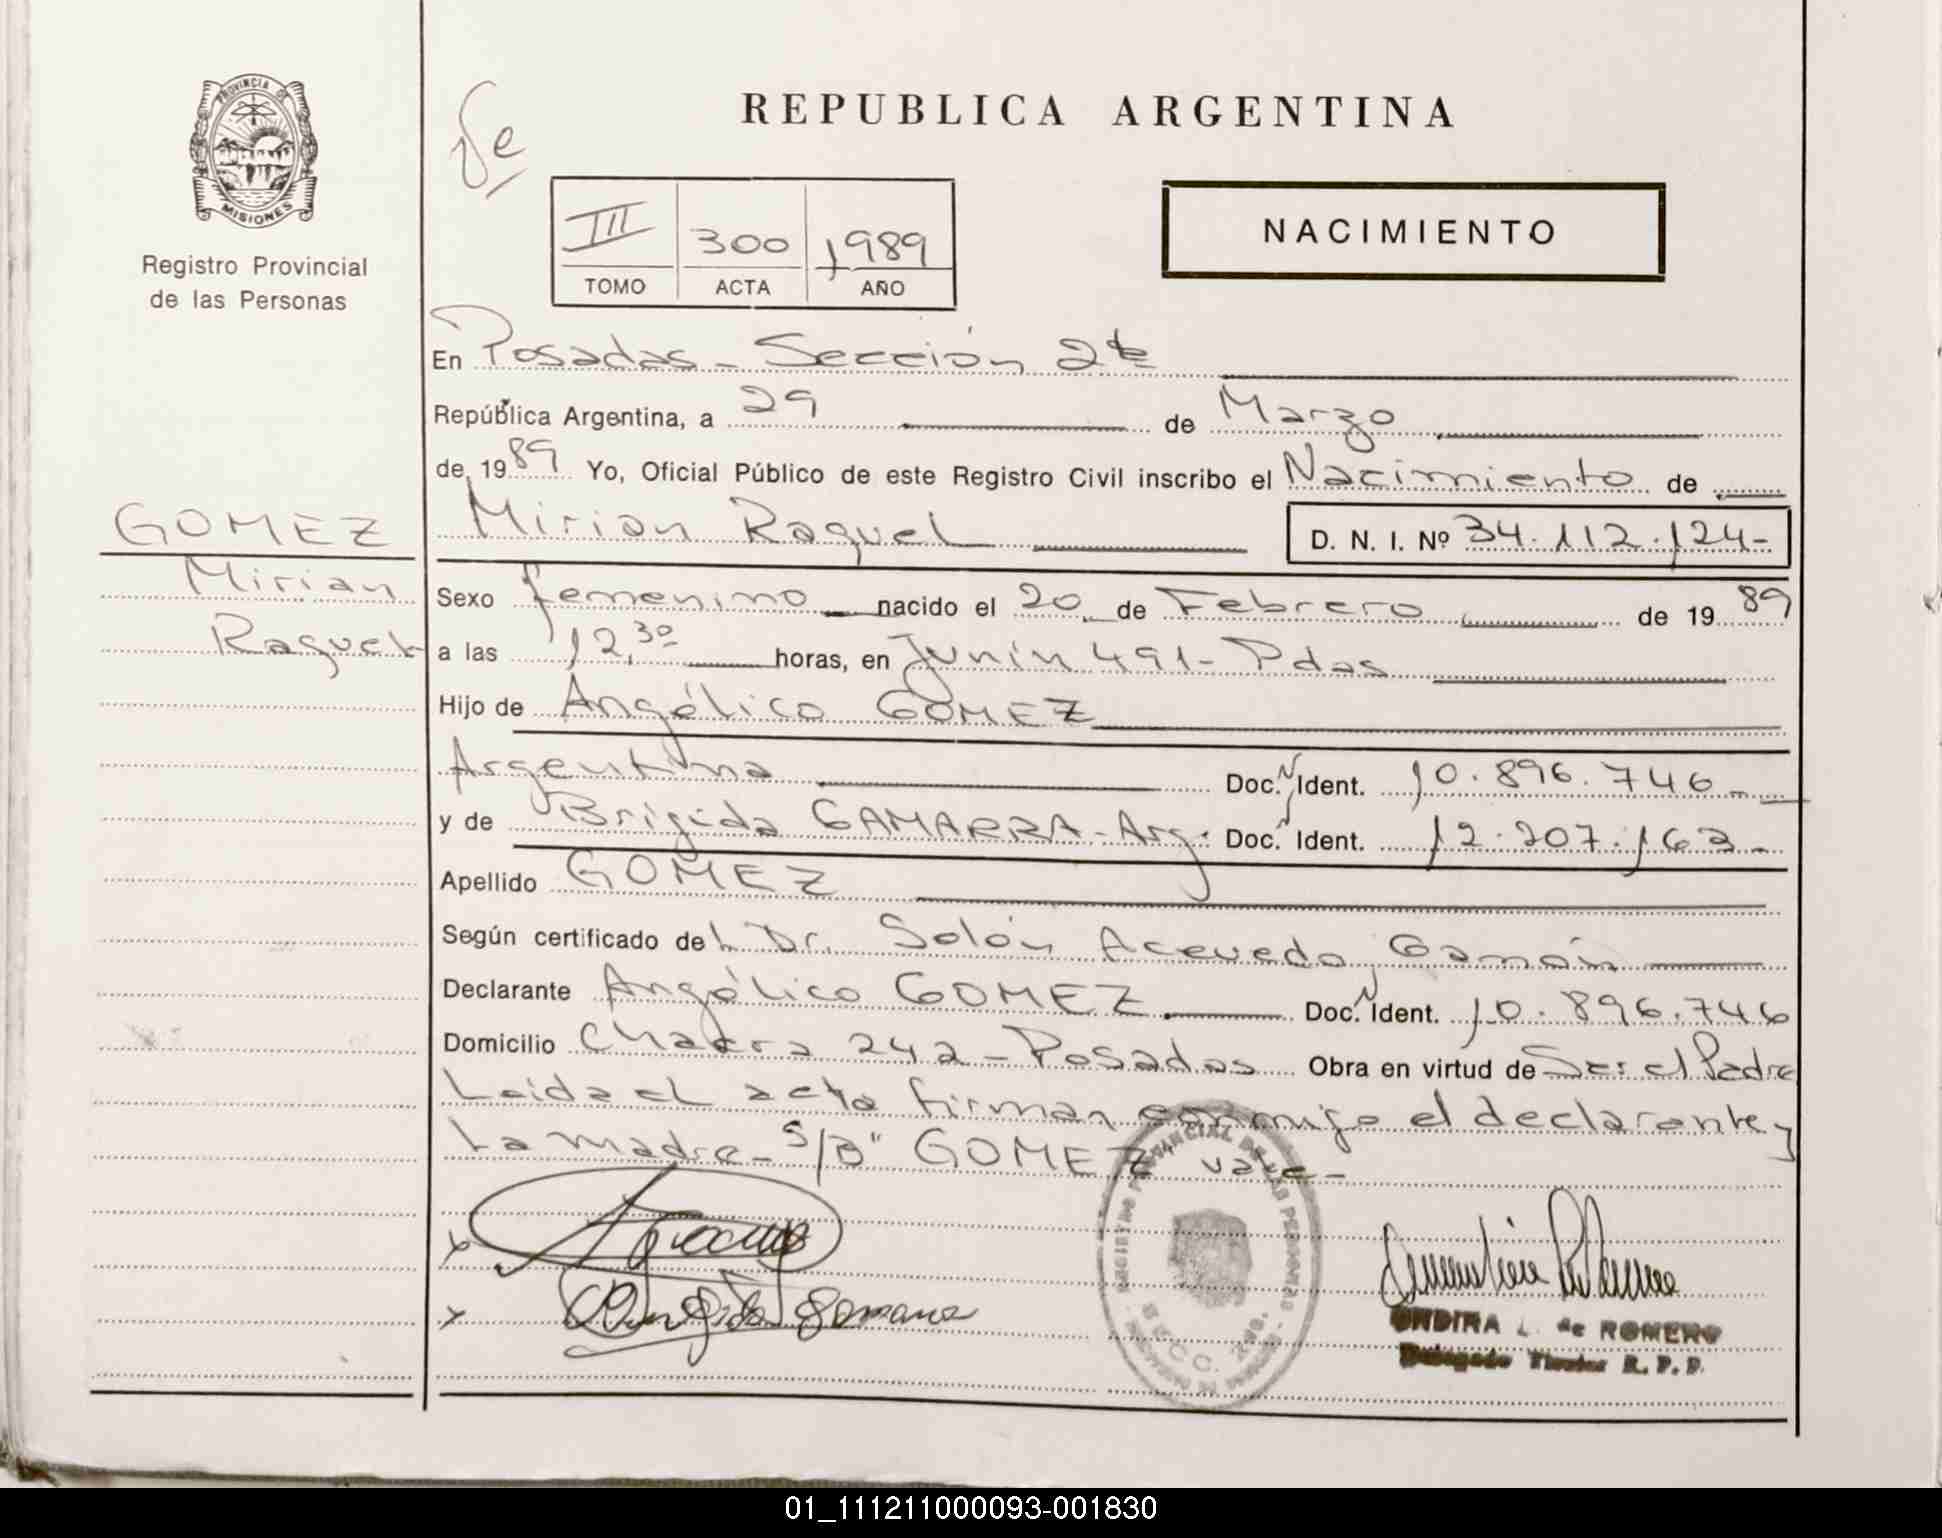 PROVINCIA DE
MISIONES
Registro Provincial
de las Personas
REPUBLICA ARGENTINA
NACIMIENTO
III 300 1989
TOMO ACTA AÑO
En Posadas - Sección 2ª
República Argentina, a 29 de Marzo
de 1989 Yo, Oficial Público de este Registro Civil inscribo el Nacimiento de
GOMEZ
Mirian
Raquel
Mirian Raquel D. N. I. Nº 34.112.124-
Sexo femenino nacido el 20 de Febrero de 1989
a las 12,30 horas, en Junín 491 - Pdas
Hijo de Angélico GOMEZ
Argentina Doc. Ident. 10.896.746-
y de Brigida GAMARRA - Arg. Doc. Ident. 12.207.163-
Apellido GOMEZ
Según certificado del Dr. Solón Acevedo
Declarante Angélico GOMEZ Doc. Ident. 10.896.746
Domicilio Chacra 242 - Posadas Obra en virtud de Ser el Padre
Leida el acta firman conmigo el declarante y
La madre - S/B" GOMEZ vale -
REGISTRO PROVINCIAL DE LAS PERSONAS
SECC. 2da.
Brigida Gamarra
ONDINA L. de ROMERO
Delegado Titular R. P. P.
01_111211000093-001830